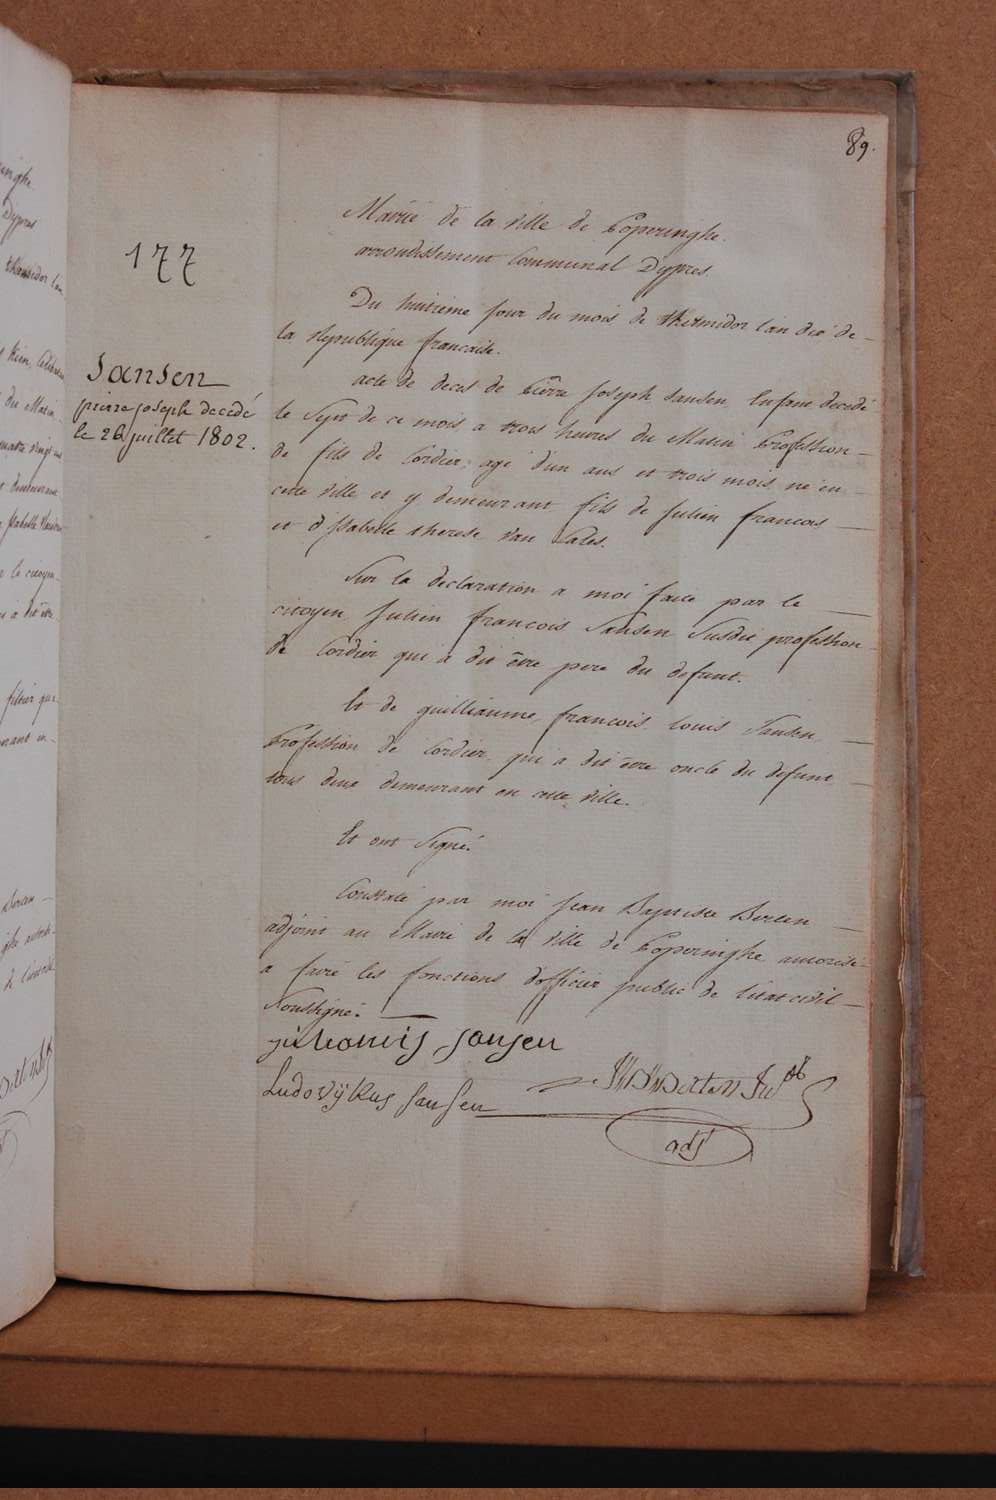 89.
Mairie de la ville de Poperinghe.
arrondissement Communal Dypres.
177
Du huitieme jour du mois de thermidor l'an dix de
la Republique francaise.
Jansen
pierre joseph decedé
le 26 juillet 1802.
acte de deces de Pierre Joseph Jansen Enfant decedé
le Sept de ce mois a trois heures du Matin Profession
de fils de Cordier, agé d'un ans et trois mois né en
cette ville et y demeurant fils de Julien francois
et d'Isabelle therese Van
Sur la declaration a moi faite par le
citoyen Julien francois Jansen Susdit profession
de Cordier qui a dit être pere du defunt.
Et de guilliaume, francois. louis Jansen
Profession de Cordier qui a dit être oncle du defunt
tous deux demeurant en cette ville.
Et ont Signé.
Constaté par moi Jean Baptiste Berten
adjoint au Maire de la ville de Poperinghe autorisé
a faire les fonctions dofficier public de l'etat civil
Soussigné.
Jansen
Ludovijkus Jansen
adjt